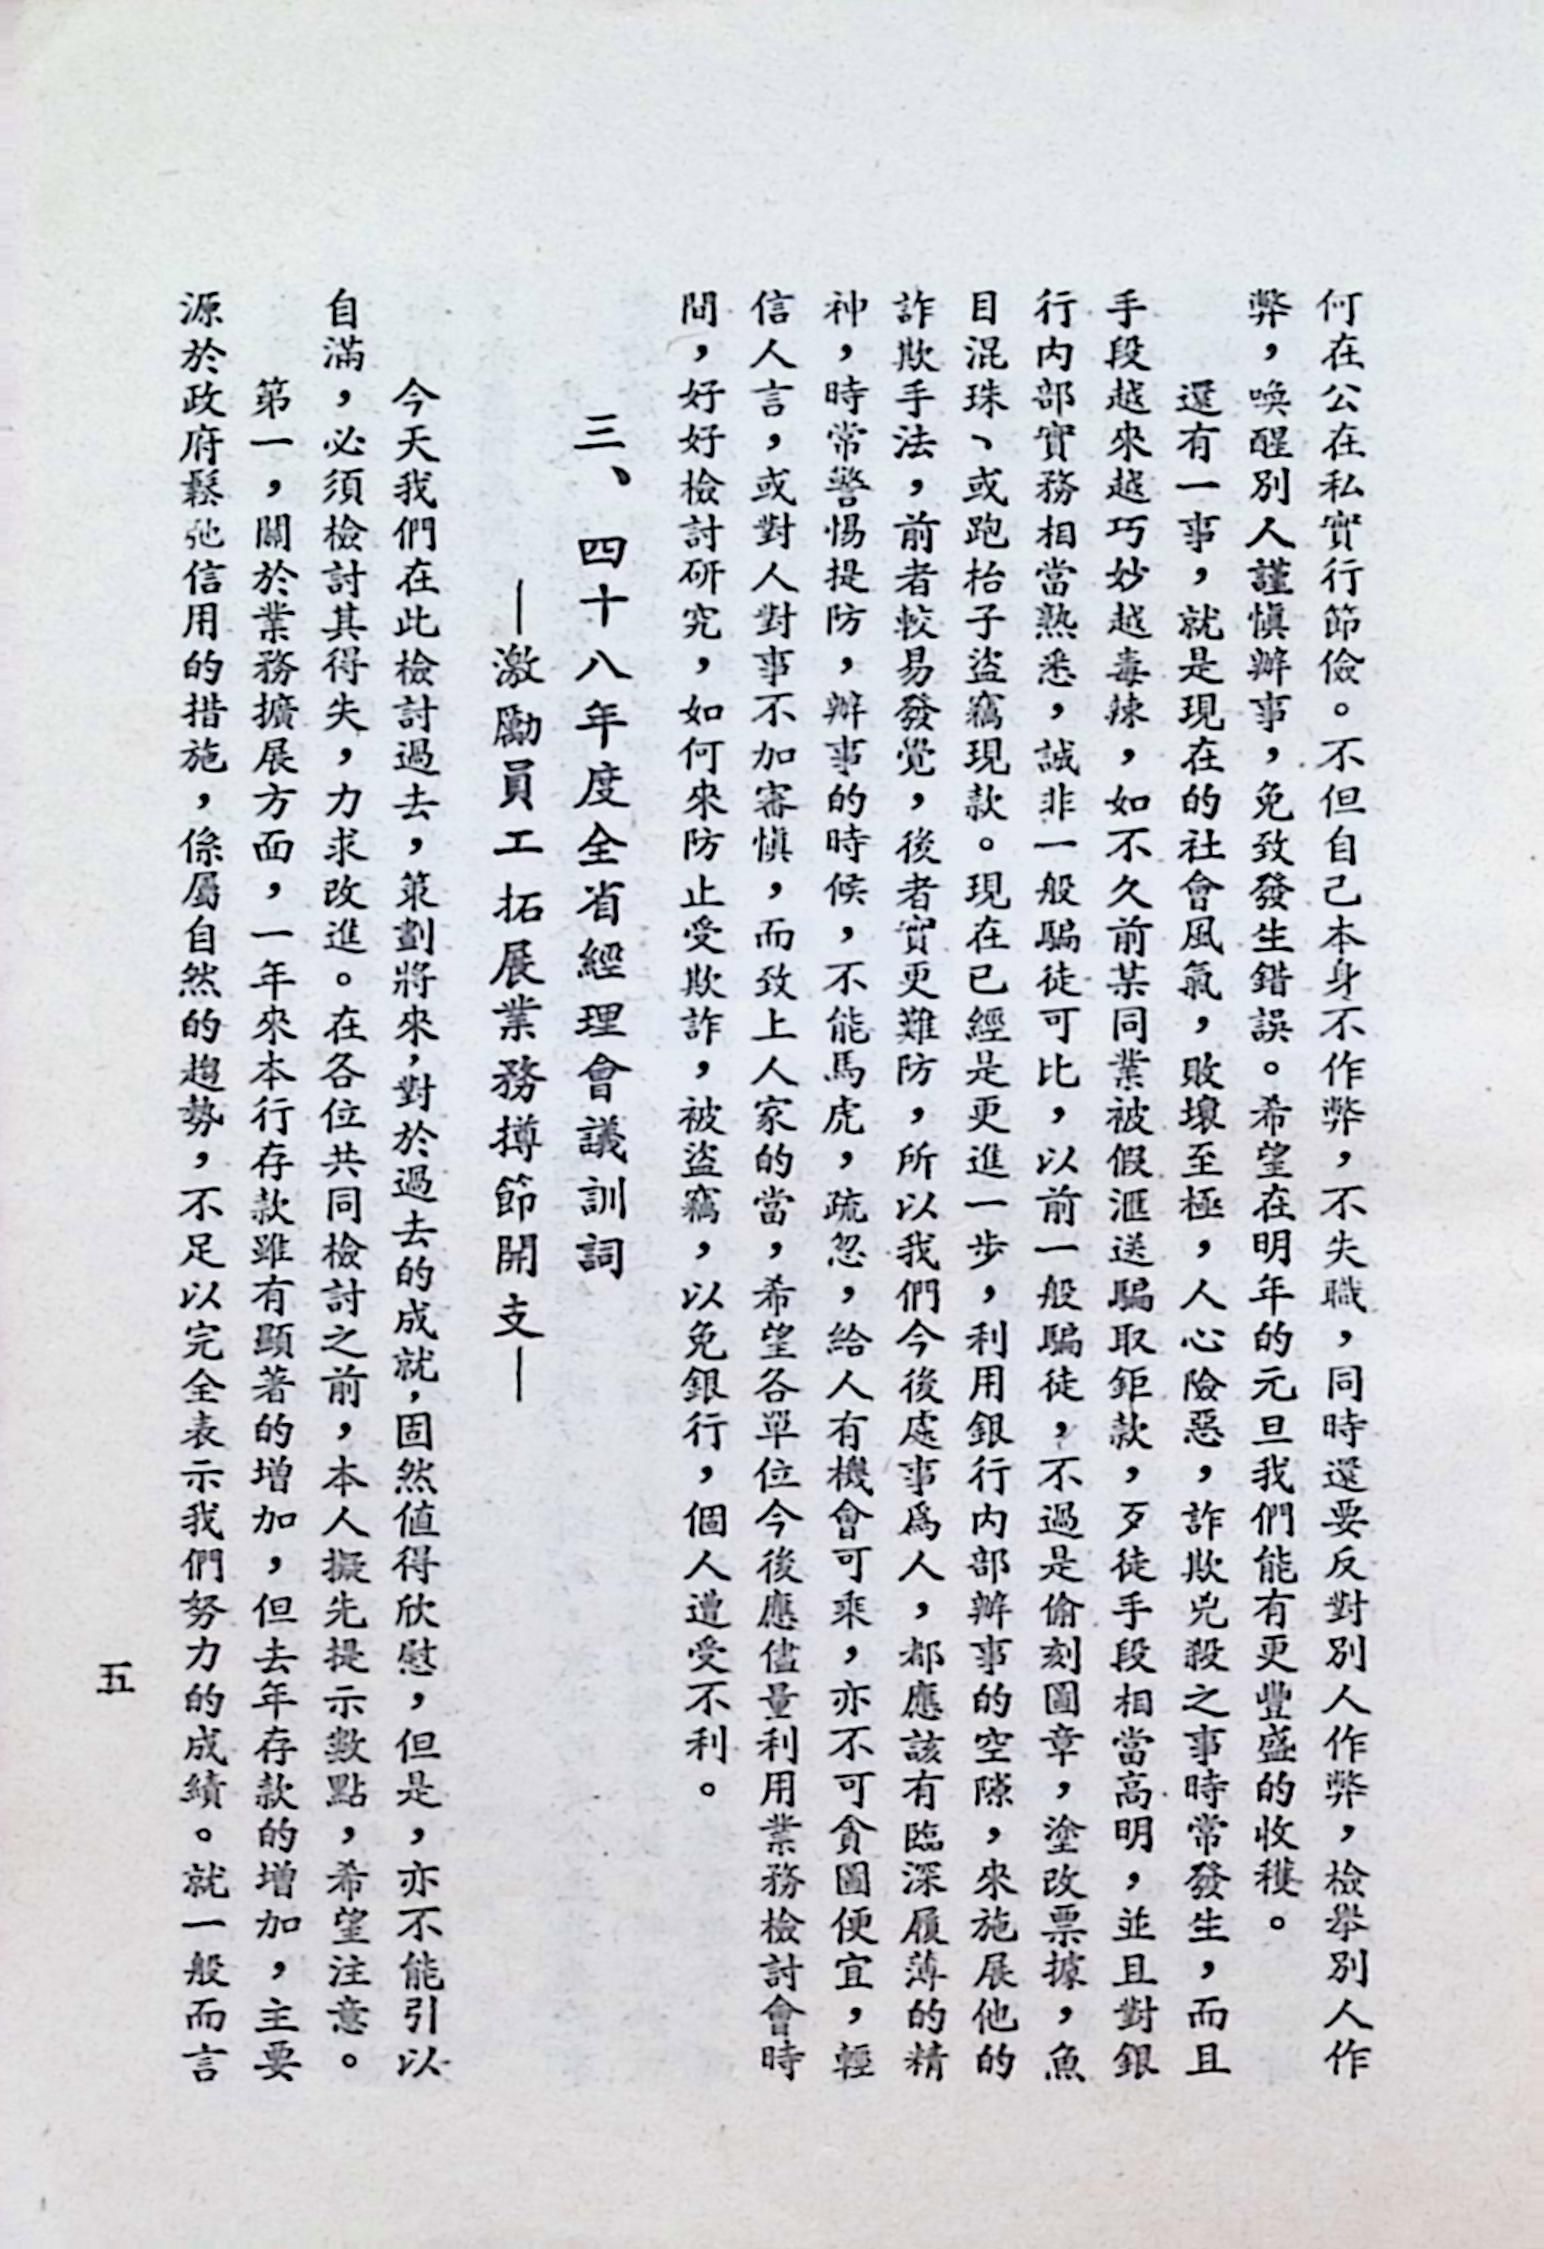 何在公在私實行節儉。不但自己本身不作弊，不失職，同時還要反對別人作弊，檢舉別人作
弊，喚醒別人謹愼辦事，免致發生錯誤。希望在明年的元旦我們能有更豐盛的收穫。
還有一事，就是現在的社會風氣，敗壞至極，人心險惡，詐欺兇殺之事時常發生，而且
手段越來越巧妙越毒辣，如不久前某同業被假滙送騙取鉅款，歹徒手段相當高明，並且對銀
行內部實務相當熟悉，誠非一般騙徒可比，以前一般騙徒，不過是偷刻圖章，塗改票據，魚
目混珠、或跑枱子盜竊現款。現在已經是更進一步，利用銀行內部辦事的空隙，來施展他的
詐欺手法，前者較易發覺，後者實更難防，所以我們今後處事爲人，都應該有臨深履薄的精
神，時常警惕提防，辦事的時候，不能馬虎，疏忽，給人有機會可乘，亦不可貪圖便宜，輕
信人言，或對人對事不加審愼，而致上人家的當，希望各單位今後應儘量利用業務檢討會時
間，好好檢討研究，如何來防止受欺詐，被盜竊，以免銀行，個人遭受不利。
三、四十八年度全省經理會議訓詞
—激勵員工拓展業務撙節開支—
今天我們在此檢討過去，策劃將來，對於過去的成就，固然值得欣慰，但是，亦不能引以
自滿，必須檢討其得失，力求改進。在各位共同檢討之前，本人擬先提示數點，希望注意。
第一，關於業務擴展方面，一年來本行存款雖有顯著的增加，但去年存款的增加，主要
源於政府鬆弛信用的措施，係屬自然的趨勢，不足以完全表示我們努力的成績。就一般而言
五